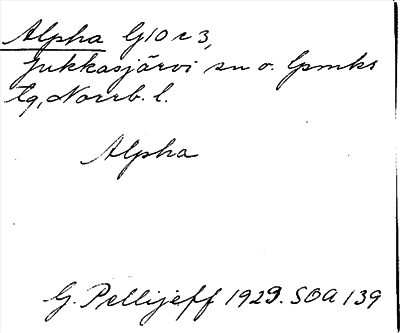 Alpha G10 r 3,
Jukkasjärvi sn o. lpmks
tg, Norrb. l.
Alpha
G. Pellijeff 1929. SOA 139